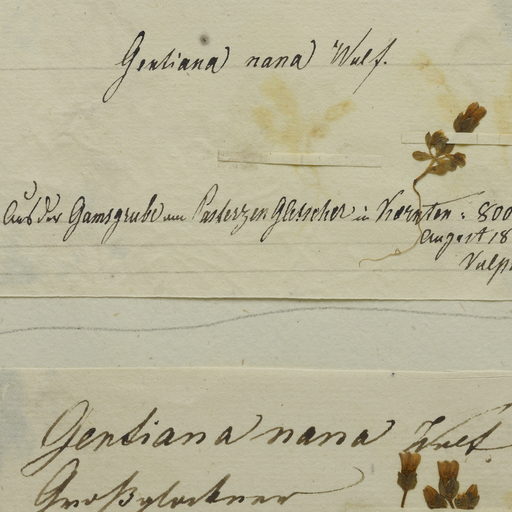 Gentiana nana Wulf.
Aus der Gamsgrube am Pasterzen Gletscher in Kärnten : 800
August 18
Vulp
Gentiana nana Wulf.
Großglockner